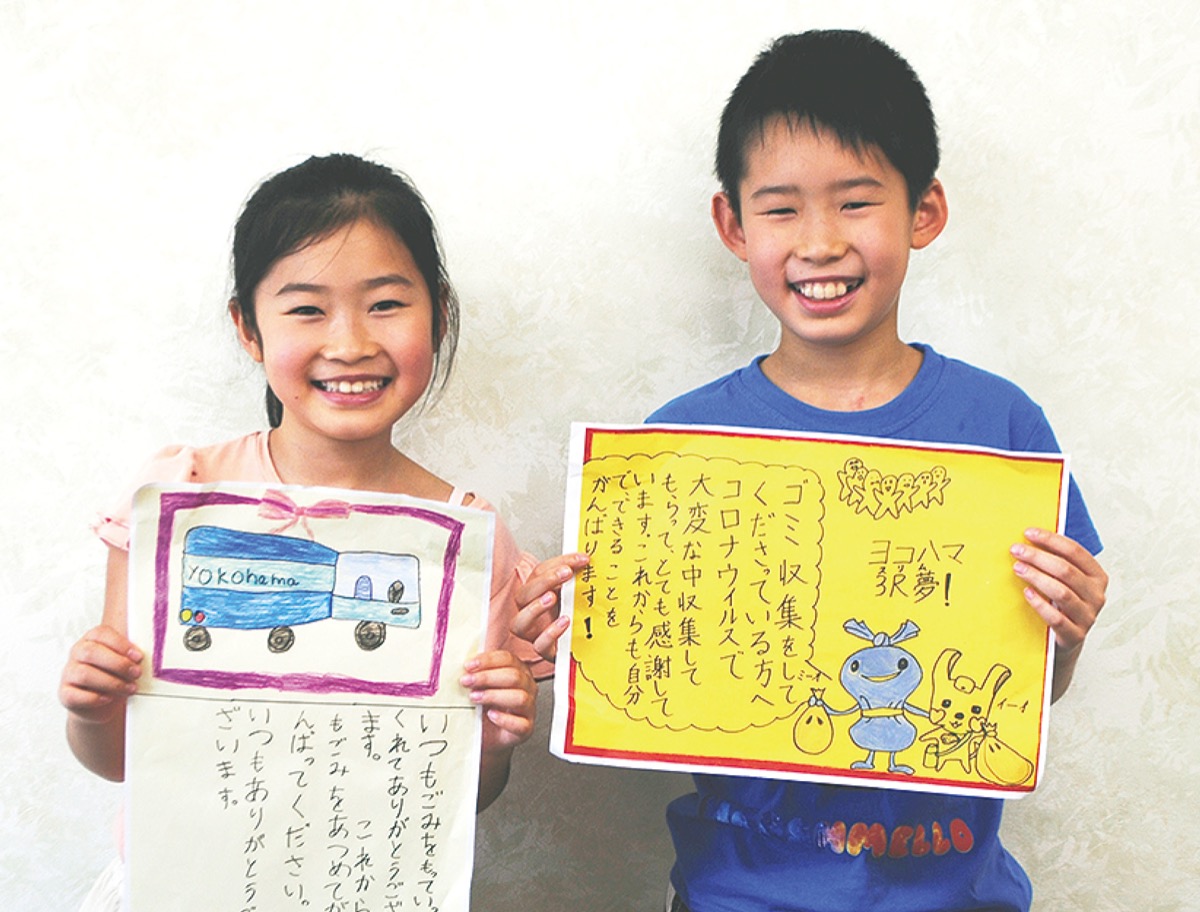 YOKOHama
いつもごみをもってい
くれてありがとうござ
ます。 これから
もごみをあつめてが
んばってください。
いつもありがとうご
ざいます。
ゴミ収集をして
くださっている方へ
コロナウイルスで
大変な中収集して
もらって、とても感謝して
います。これからも自分
で、できることを
がんばります!
ヨコハマ
3R夢!
イーオ
MMELLO